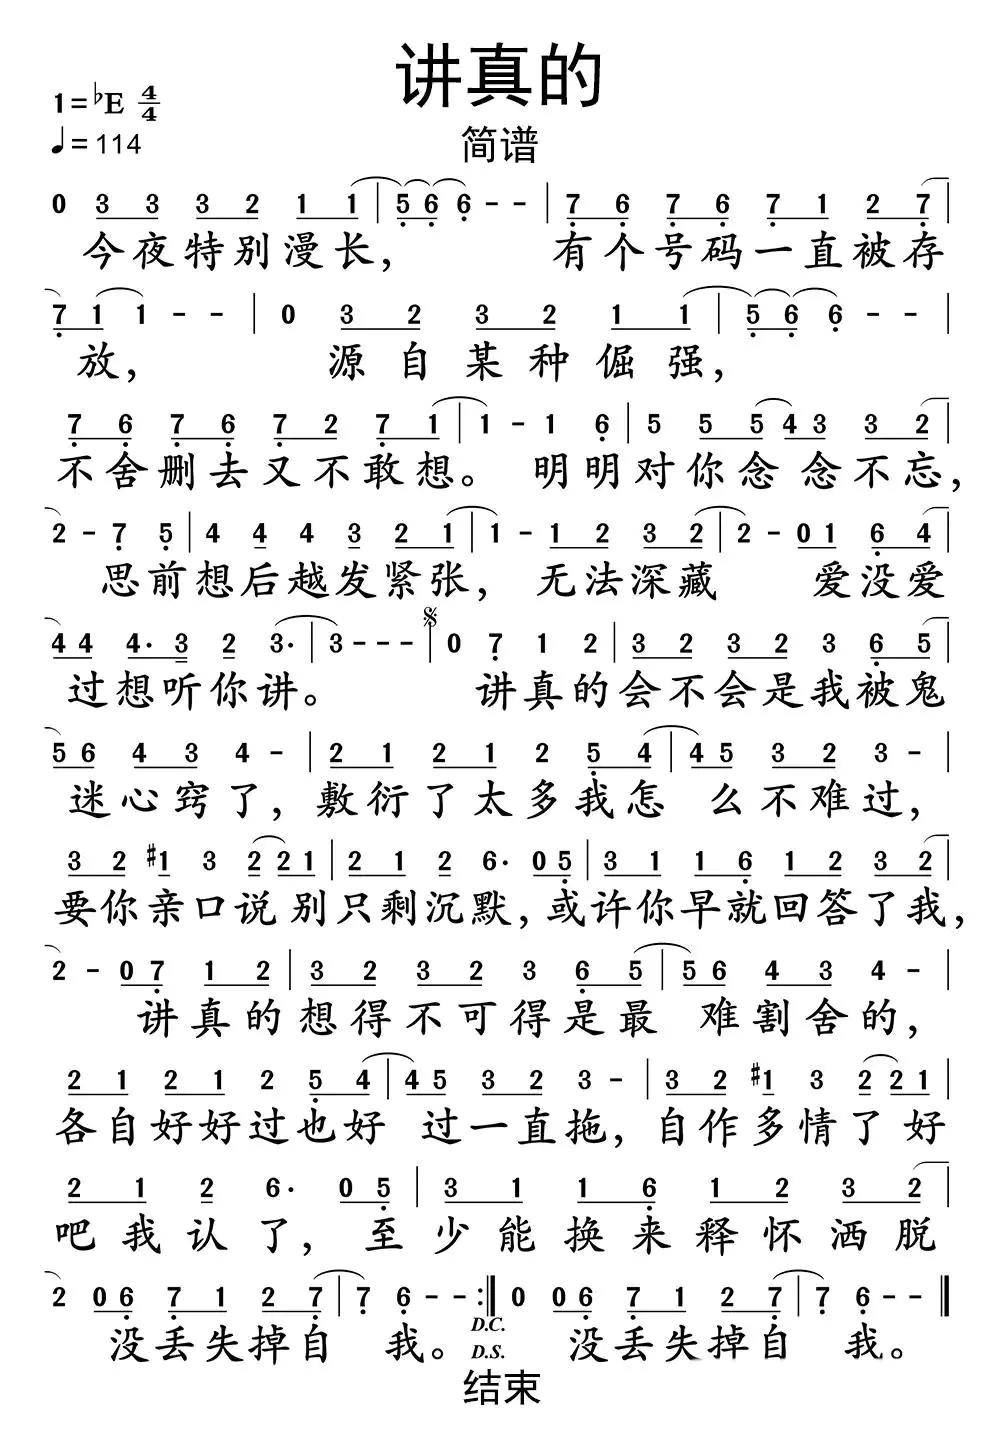 讲真的
1=♭E 4/4
♩=114
简谱
0 3 3 3 2 1 1 | 5 6 6 - - | 7 6 7 6 7 1 2 7 |
今夜特别漫长， 有个号码一直被存
7 1 1 - - | 0 3 2 3 2 1 1 | 5 6 6 - - |
放， 源自某种倔强，
7 6 7 6 7 2 7 1 | 1 - 1 6 | 5 5 5 4 3 3 2 |
不舍删去又不敢想。 明明对你念念不忘，
2 - 7 5 | 4 4 4 3 2 1 | 1 - 1 2 3 2 | 2 - 0 1 6 4 |
思前想后越发紧张， 无法深藏 爱没爱
4 4 4· 3 2 3· | 3 - - - | 0 7 1 2 | 3 2 3 2 3 6 5 |
过想听你讲。 讲真的会不会是我被鬼
5 6 4 3 4 - | 2 1 2 1 2 5 4 | 4 5 3 2 3 - |
迷心窍了，敷衍了太多我怎么不难过，
3 2 #1 3 2 2 1 | 2 1 2 6· 0 5 | 3 1 1 6 1 2 3 2 |
要你亲口说别只剩沉默，或许你早就回答了我，
2 - 0 7 1 2 | 3 2 3 2 3 6 5 | 5 6 4 3 4 - |
讲真的想得不可得是最难割舍的，
2 1 2 1 2 5 4 | 4 5 3 2 3 - | 3 2 #1 3 2 2 1 |
各自好好过也好过一直拖，自作多情了好
2 1 2 6· 0 5 | 3 1 1 6 1 2 3 2 |
吧我认了，至少能换来释怀洒脱
2 0 6 7 1 2 7 | 7 6 - - :‖ 0 0 6 7 1 2 7 | 7 6 - - ‖
没丢失掉自我。 D.C. 没丢失掉自我。
D.S.
结束